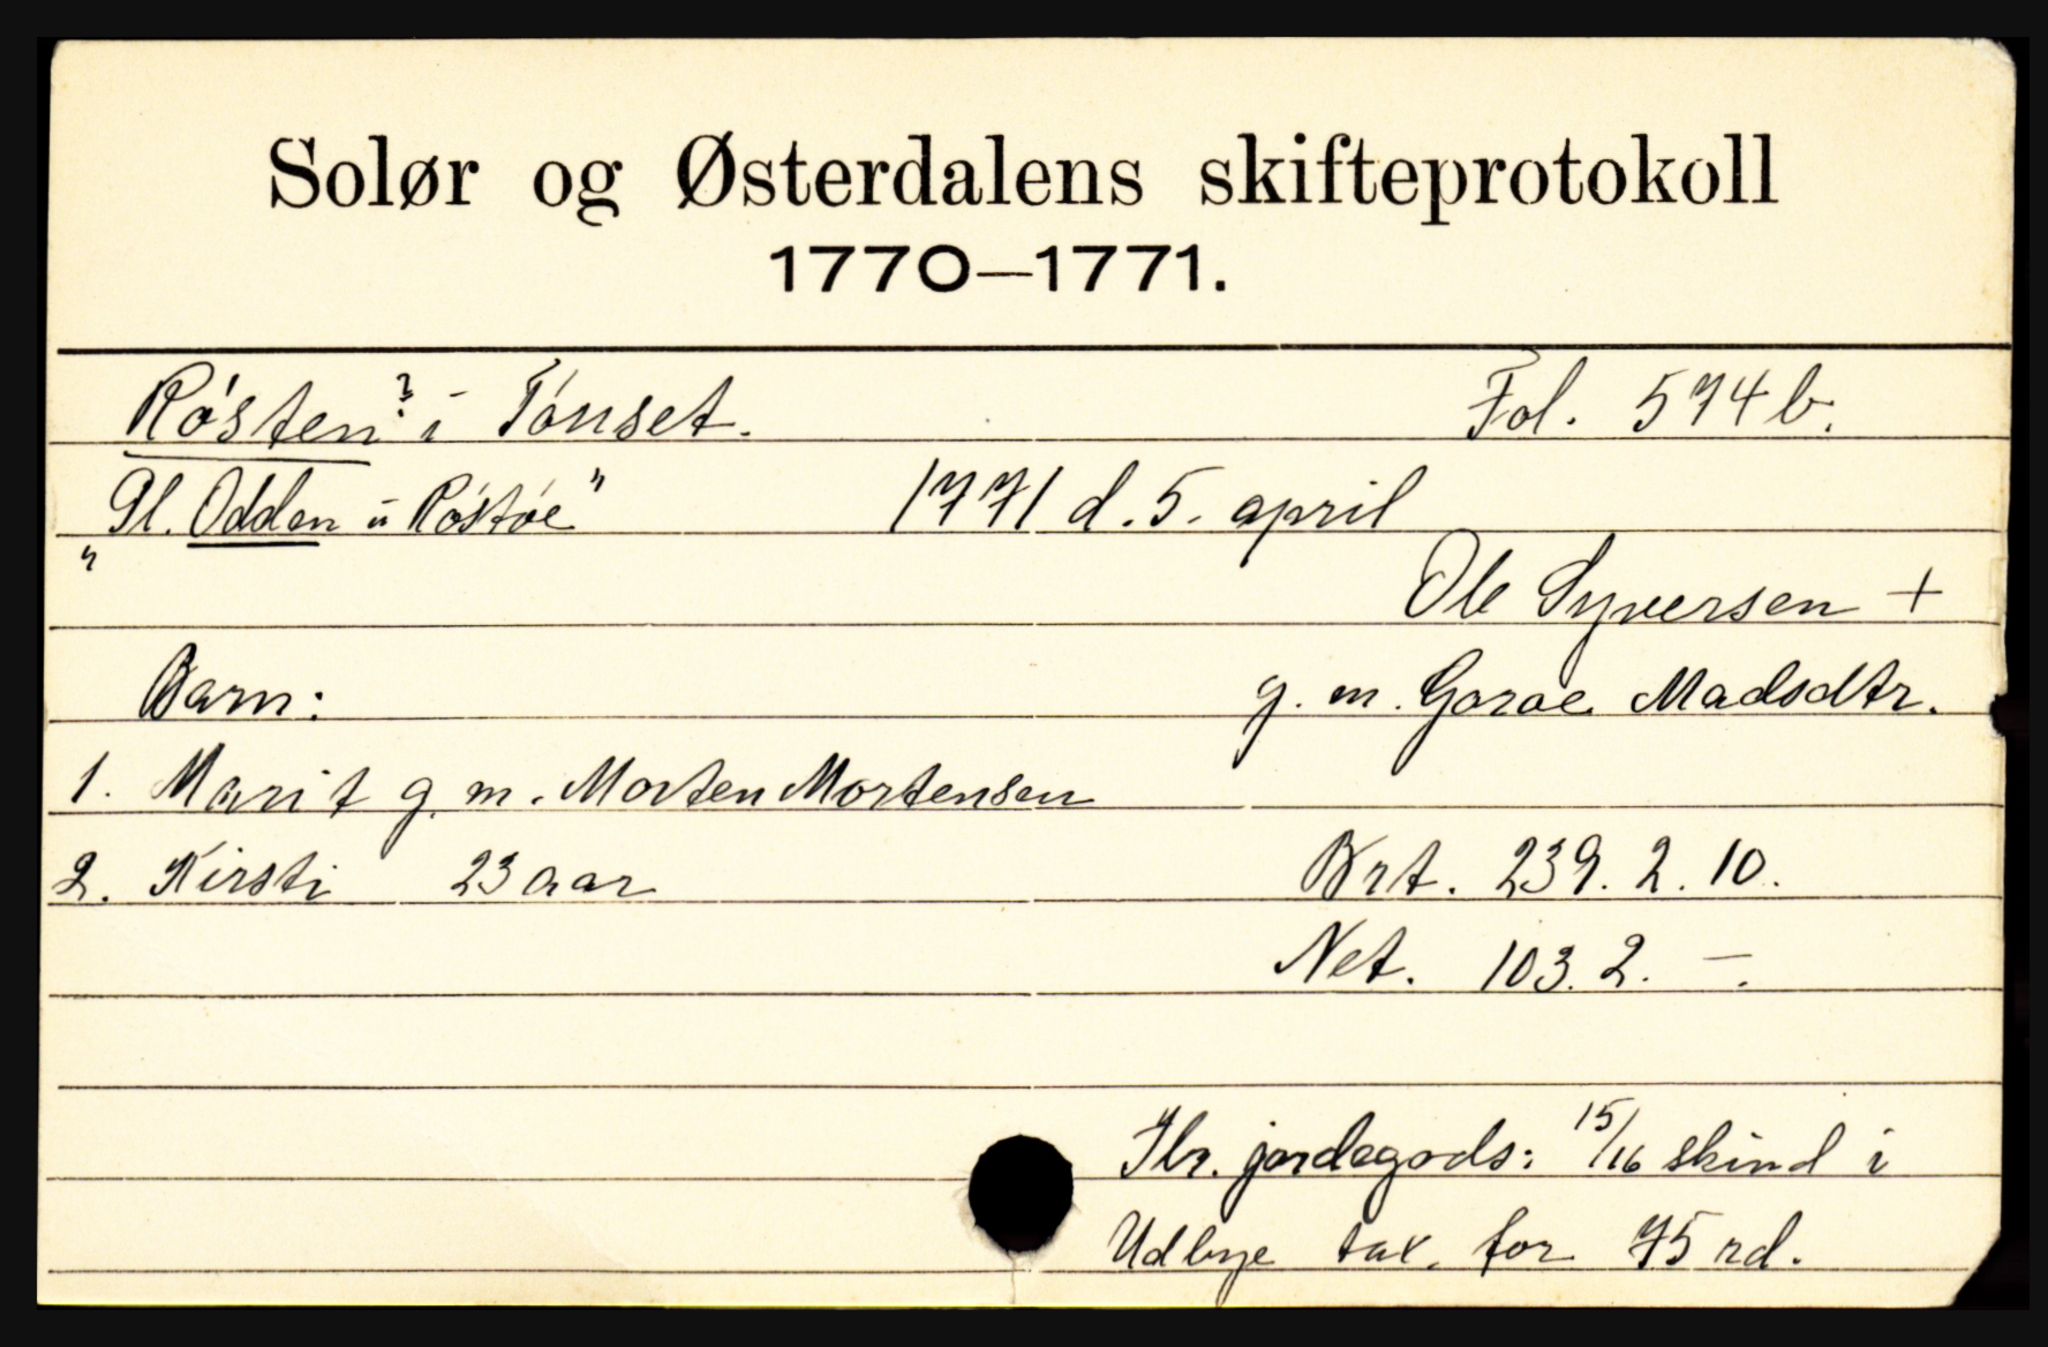 Solør og Østerdalens skifteprotokoll
1770—1771.
Røsten? i Tønset. Fol. 574 b.
"Pl. Odden i Røstøe" 1771 d. 5. april
Ole Syversen +
Barn: g. m. Goroe Madsdtr.
1. Marit g. m. Morten Mortensen
2. Kirsti 23 aar Brt. 239. 2. 10.
Net. 103. 2. —.
Ihr. jordegods: 15/16 skind i
Udbye tax. for 75 rd.